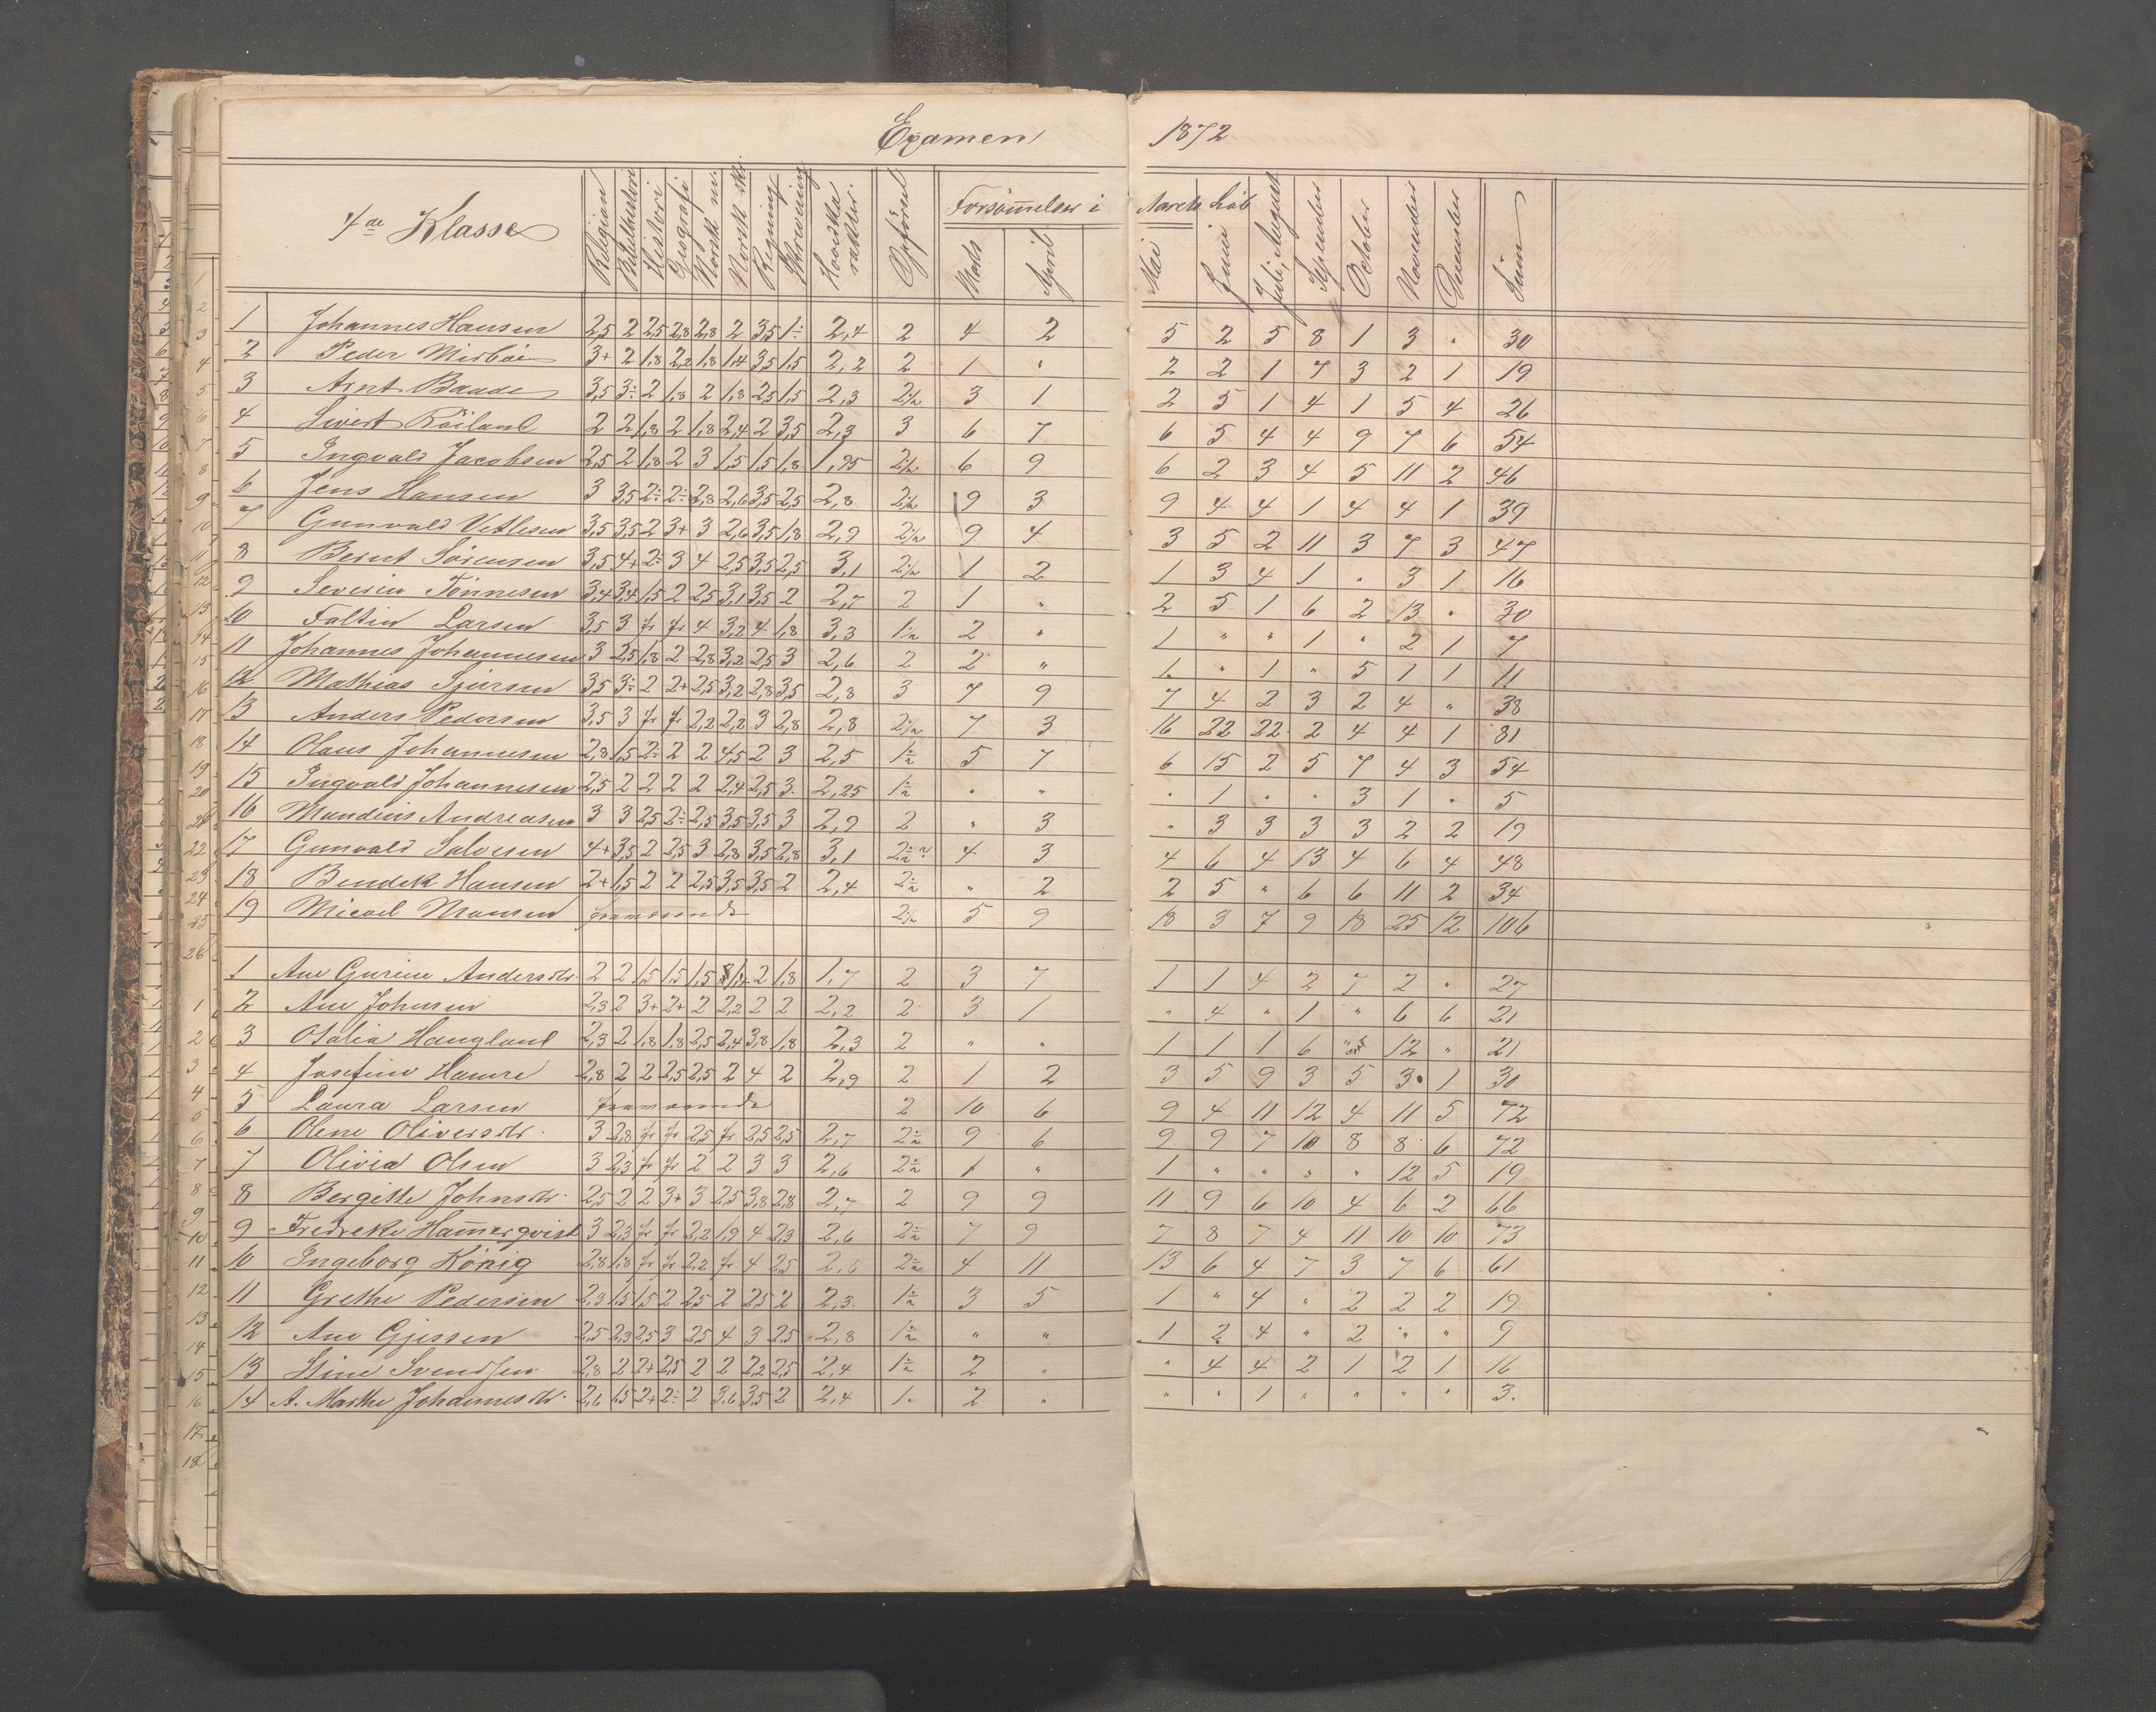 Examen 1872
4de Klasse Religion Bibelhistorie Histori Geografi Norsk m. Norsk sk. Regning Skrivning Hovedka rakter. Opförsel Forsömmelser i Aarets Löb
Marts April Mai Juni Juli, August September October November December Sum
1 Johannes Hansen 2,5 2 2,5 2,8 2,8 2 3,5 1÷ 2,4 2 4 2 5 2 5 8 1 3 " 30
2 Peder 3+ 2 1,8 2,2 1,8 1,4 3,5 1,5 2,2 2 1 " 2 2 1 7 3 2 1 19
3 Arnt Baade 3,5 3÷ 2 1,8 2 1,8 2,5 1,5 2,3 2½ 3 1 2 5 1 4 1 5 4 26
4 Sivert Röiland 2 2 1,8 2 1,8 2,4 2 3,5 2,3 3 6 7 6 5 4 4 9 7 6 54
5 Ingvald Jacobsen 2,5 2 1,8 2 3 1,5 1,5 1,8 1,95 2½ 6 9 6 2 3 4 5 11 2 46
6 Jens Hansen 3 3,5 2÷ 2÷ 2,8 2,6 3,5 2,5 2,8 2½ 9 3 9 4 4 1 4 4 1 39
7 Gunvald Vetlesen 3,5 3,5 2 3+ 3 2,6 3,5 1,8 2,9 2½ 9 4 3 5 2 11 3 7 3 47
8 Bernt Sörensen 3,5 4+ 2÷ 3 4 2,5 3,5 2,5 3,1 2½ 1 2 1 3 4 1 " 3 1 16
9 Severin Tönnesen 3,4 3,4 1,5 2 2,5 3,1 3,5 2 2,7 2 1 " 2 5 1 6 2 13 " 30
10 Faltin Larsen 3,5 3 fr fr 4 3,2 4 1,8 3,3 1½ 2 " 1 " " 1 " 2 1 7
11 Johannes Johannesen 3 2,5 1,8 2 2,8 3,2 2,5 3 2,6 2 2 " 1 " 1 " 5 1 1 11
12 Mathias Sjursen 3,5 3÷ 2 2+ 2,5 3,2 2,8 3,5 2,8 3 7 9 7 4 2 3 2 4 " 38
13 Anders Pedersen 3,5 3 fr fr 2,2 2,2 3 2,8 2,8 2½ 7 3 16 22 22 2 4 4 1 81
14 Olaus Johannesen 2,8 1,5 2÷ 2 2 4,5 2 3 2,5 1½ 5 7 6 15 2 5 7 4 3 54
15 Ingvald Johannesen 2,5 2 2 2 2 2,4 2,5 3 2,25 1½ " " " 1 " " 3 1 " 5
16 Mandius Andreasen 3 3 2,5 2÷ 2,5 3,5 3,5 3 2,9 2 " 3 " 3 3 3 3 2 2 19
17 Gunvald Salvesen 4+ 3,5 2 2,5 3 2,8 3,5 2,8 3,1 2½ 4 3 4 6 4 13 4 6 4 48
18 Bendek Hansen 2+ 1,5 2 2 2,5 3,5 3,5 2 2,4 2½ " 2 2 5 " 6 6 11 2 34
19 Micael fraværende 2½ 5 9 18 3 7 9 18 25 12 106
1 Ane Gurine Andersdtr. 2 2 1,5 1,5 1,5 2 1,8 1,7 2 3 7 1 1 4 2 7 2 " 27
2 Ane Johnsen 2,3 2 3+ 2+ 2 2,2 2 2 2,2 2 3 1 " 4 " 1 " 6 6 21
3 Otalia Haugland 2,3 2 1,8 1,8 2,5 2,4 3,8 1,8 2,3 2 " " 1 1 1 6 " 12 " 21
4 Josefine Hamre 2,8 2 2 2,5 2,5 2 4 2 2,9 2 1 2 3 5 9 3 5 3 1 30
5 Laura Larsen fraværende 2 10 6 9 4 11 12 4 11 5 72
6 Olene Oliversdtr. 3 2,8 fr fr 2,5 fr 2,5 2,5 2,7 2½ 9 6 9 9 7 10 8 8 6 72
7 Olivia Olsen 3 2,3 fr fr 2 2 3 3 2,6 2½ 1 " 1 " " " " 12 5 19
8 Bergitte Johnsdtr. 2,5 2 2 3+ 3 2,5 3,8 2,8 2,7 2 9 9 11 9 6 10 4 6 2 66
9 Fredreke Hammerqvist 3 2,3 fr fr 2,2 1,9 4 2,3 2,6 2½ 7 9 7 8 7 4 11 10 10 73
10 Ingeborg König 2,8 1,8 fr fr 2,2 fr 4 2,5 2,6 2½ 4 11 13 6 4 7 3 7 6 61
11 Grethe Pedersen 2,3 1,5 1,5 2 2,5 2 2,5 2 2,3 1½ 3 5 1 " 4 " 2 2 2 19
12 Ane Gjessen 2,5 2,3 2,5 3 2,5 4 3 2,5 2,8 1½ " " 1 2 4 " 2 " " 9
13 Stine Svendsen 2,8 2 2+ 2,5 2 2 2,2 2,5 2,4 1½ 2 " " 4 4 2 1 2 1 16
14 A. Marthe Johannesdtr. 2,6 1,5 2+ 2÷ 2 3,6 3,5 2 2,4 1 2 " " " 1 " " " " 3